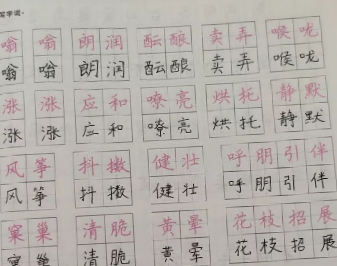 嗡嗡 朗润 酝酿 卖弄 喉咙
嗡嗡 朗润 酝酿 卖弄 喉咙
涨涨 应和 嘹亮 烘托 静默
涨涨 应和 嘹亮 烘托 静默
风筝 抖擞 健壮 呼朋引伴
风筝 抖擞 健壮 呼朋引伴
窠巢 清脆 黄晕 花枝招展
窠巢 清脆 黄晕 花枝招展